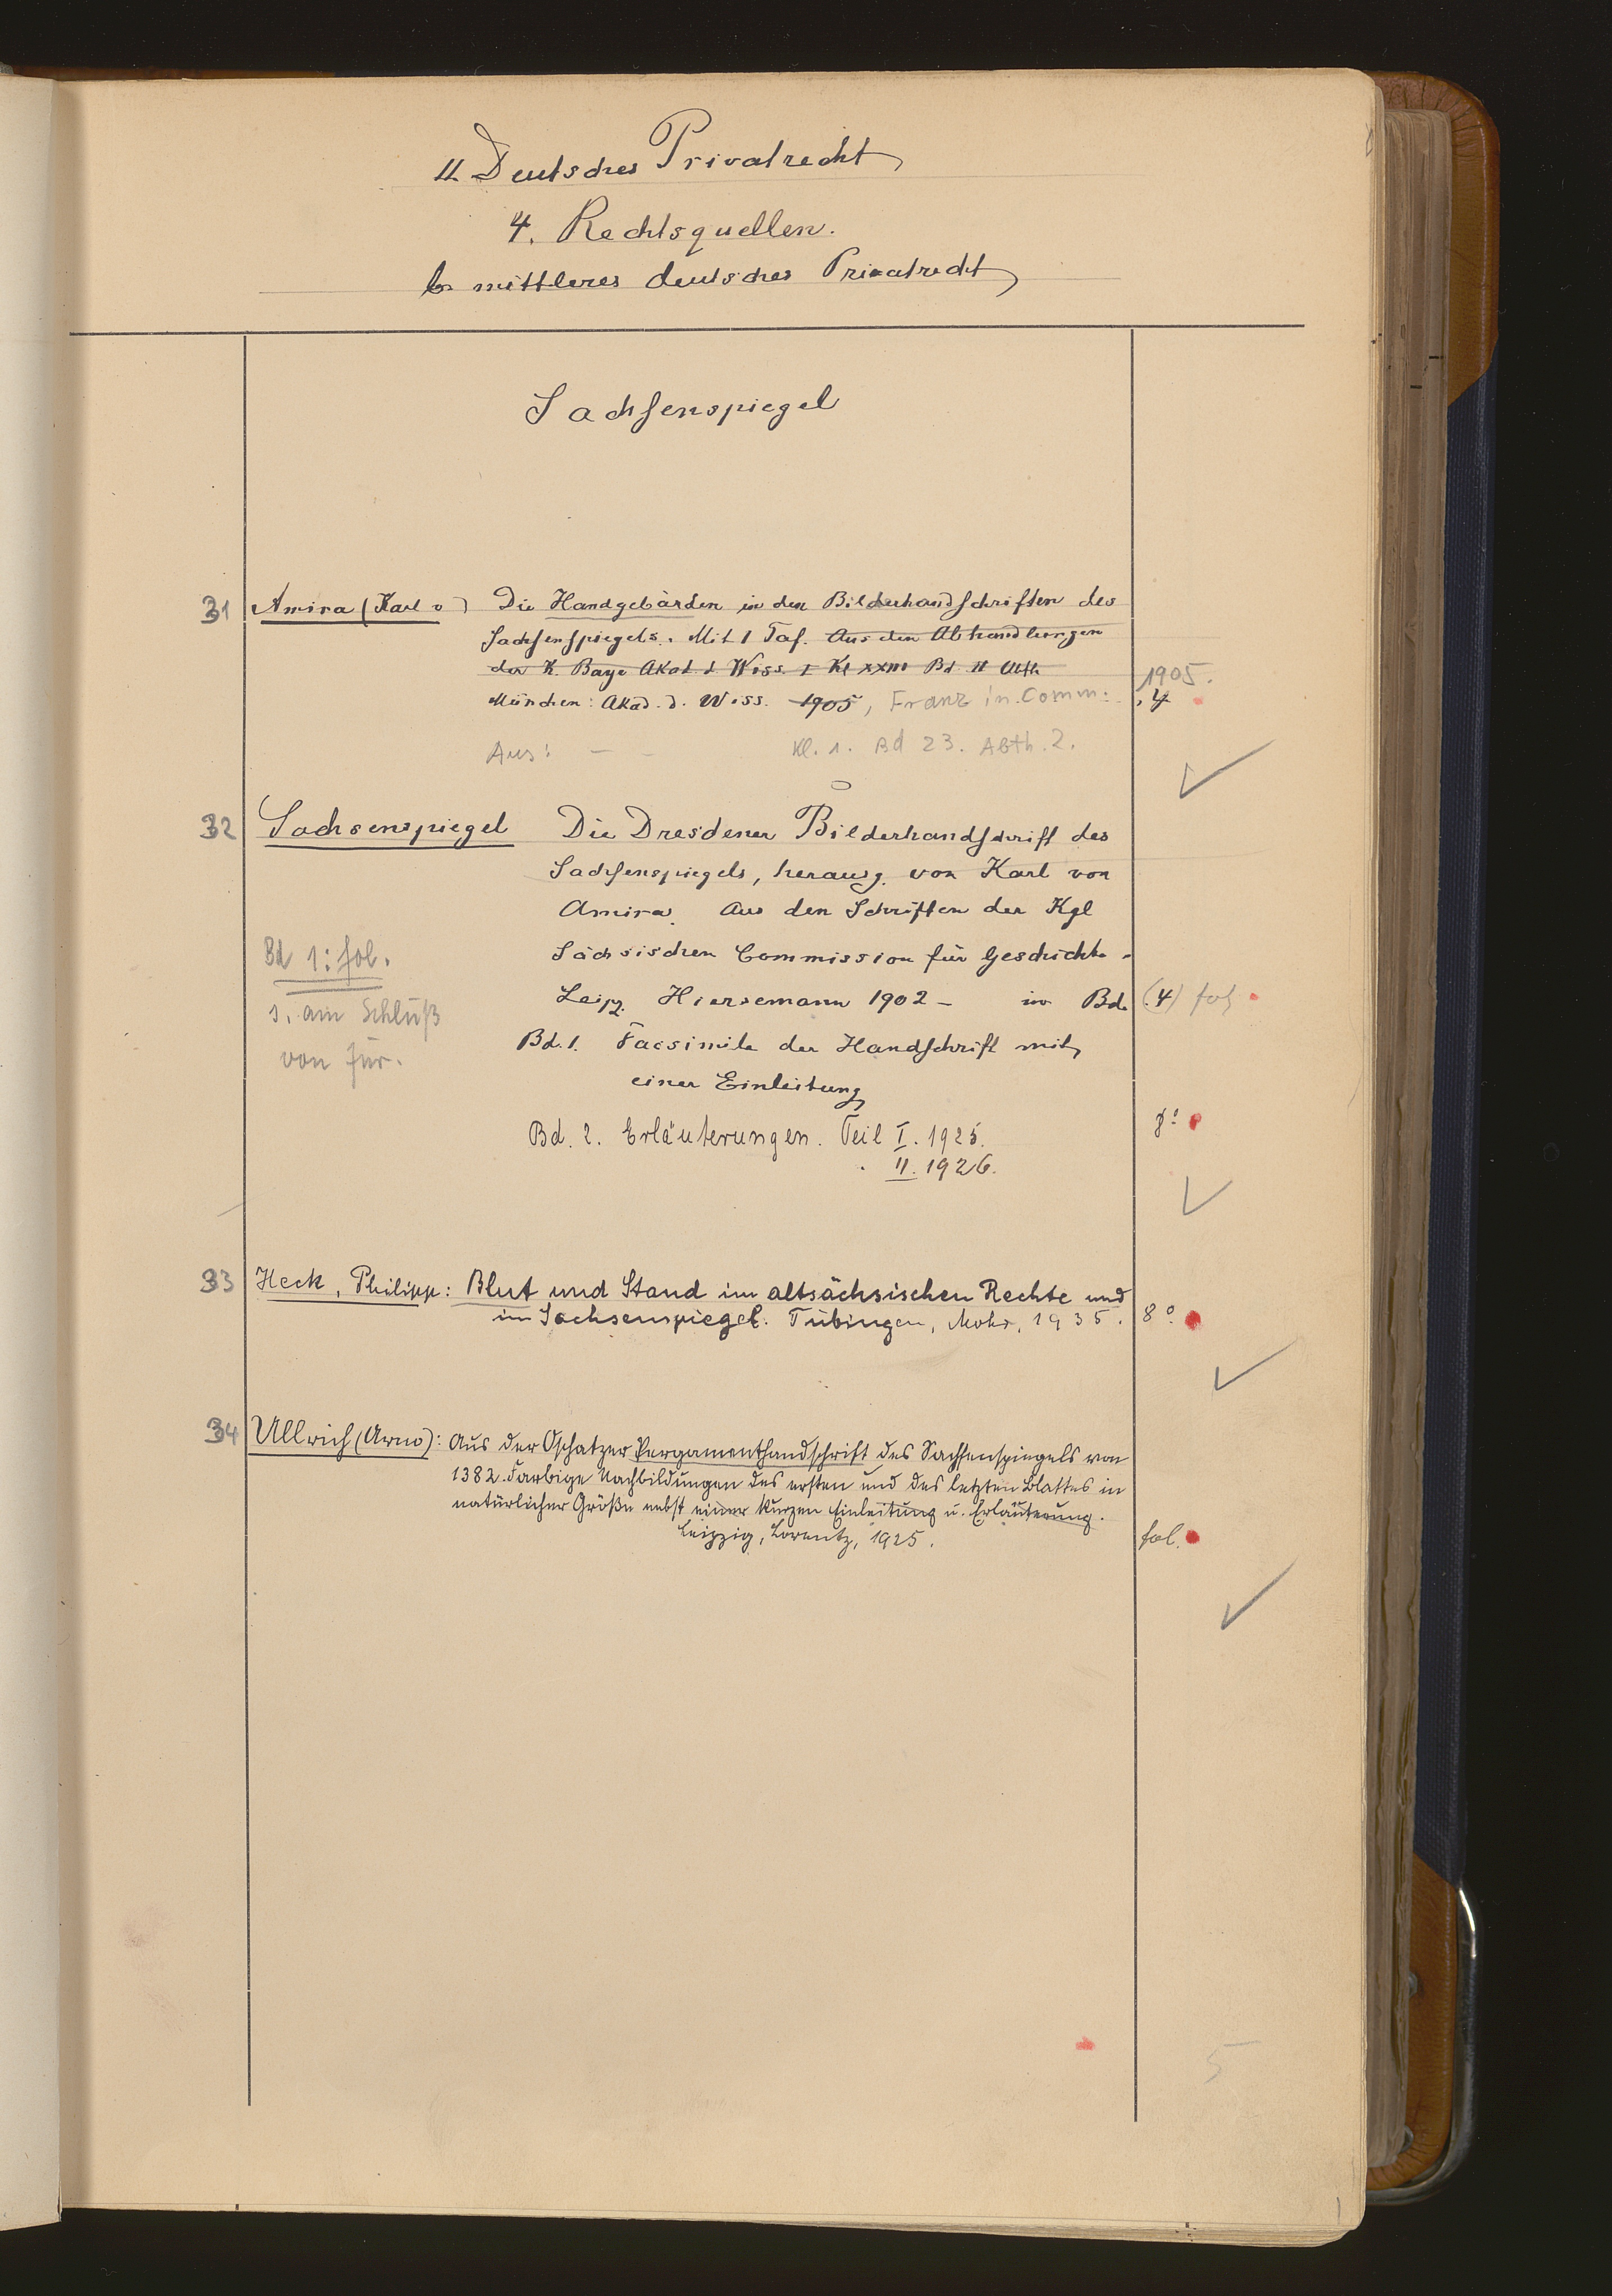 II. Deutsches Privatrecht
4. Rechtsquellen.
b. mittleres deutsches Privatrecht
Sachsenspiegel
31 Amira (Karl v) Die Handgebärden in den Bilderhandschriften des
Sachsenspiegels. Mit 1 Taf. Aus den Abhandlungen
der K. Baye Akad. d. Wiss. I Kl XXIII Bd. II Abth
1905.
München: Akad. d. Wiss. 1905, Franz in Comm: 4
Aus: — — Kl. 1. Bd 23. Abth. 2.
32 Sachsenspiegel Die Dresdener Bilderhandschrift des
Sachsenspiegels, herausg. von Karl von
Amira. Aus den Schriften der Kgl
Sächsischen Commission für Geschichte.
Leipz. Hiersemann 1902 – in Bd. (4) fol
Bd 1: fol.
s. am Schluß
von Jur.
Bd. 1. Facsimile der Handschrift mit
einer Einleitung
Bd. 2. Erläuterungen. Teil I. 1925. 8°
II. 1926.
33 Heck, Philipp: Blut und Stand im altsächsischen Rechte und
im Sachsenspiegel. Tübingen, Mohr, 1935. 8°
34 Ullrich (Arno): Aus der Oschatzer Pergamenthandschrift des Sachsenspiegels von
1382. Farbige Nachbildungen des ersten und des letzten Blattes in
natürlicher Größe nebst einer kurzen Einleitung u. Erläuterung.
Leipzig, Lorentz, 1925. fol.
5